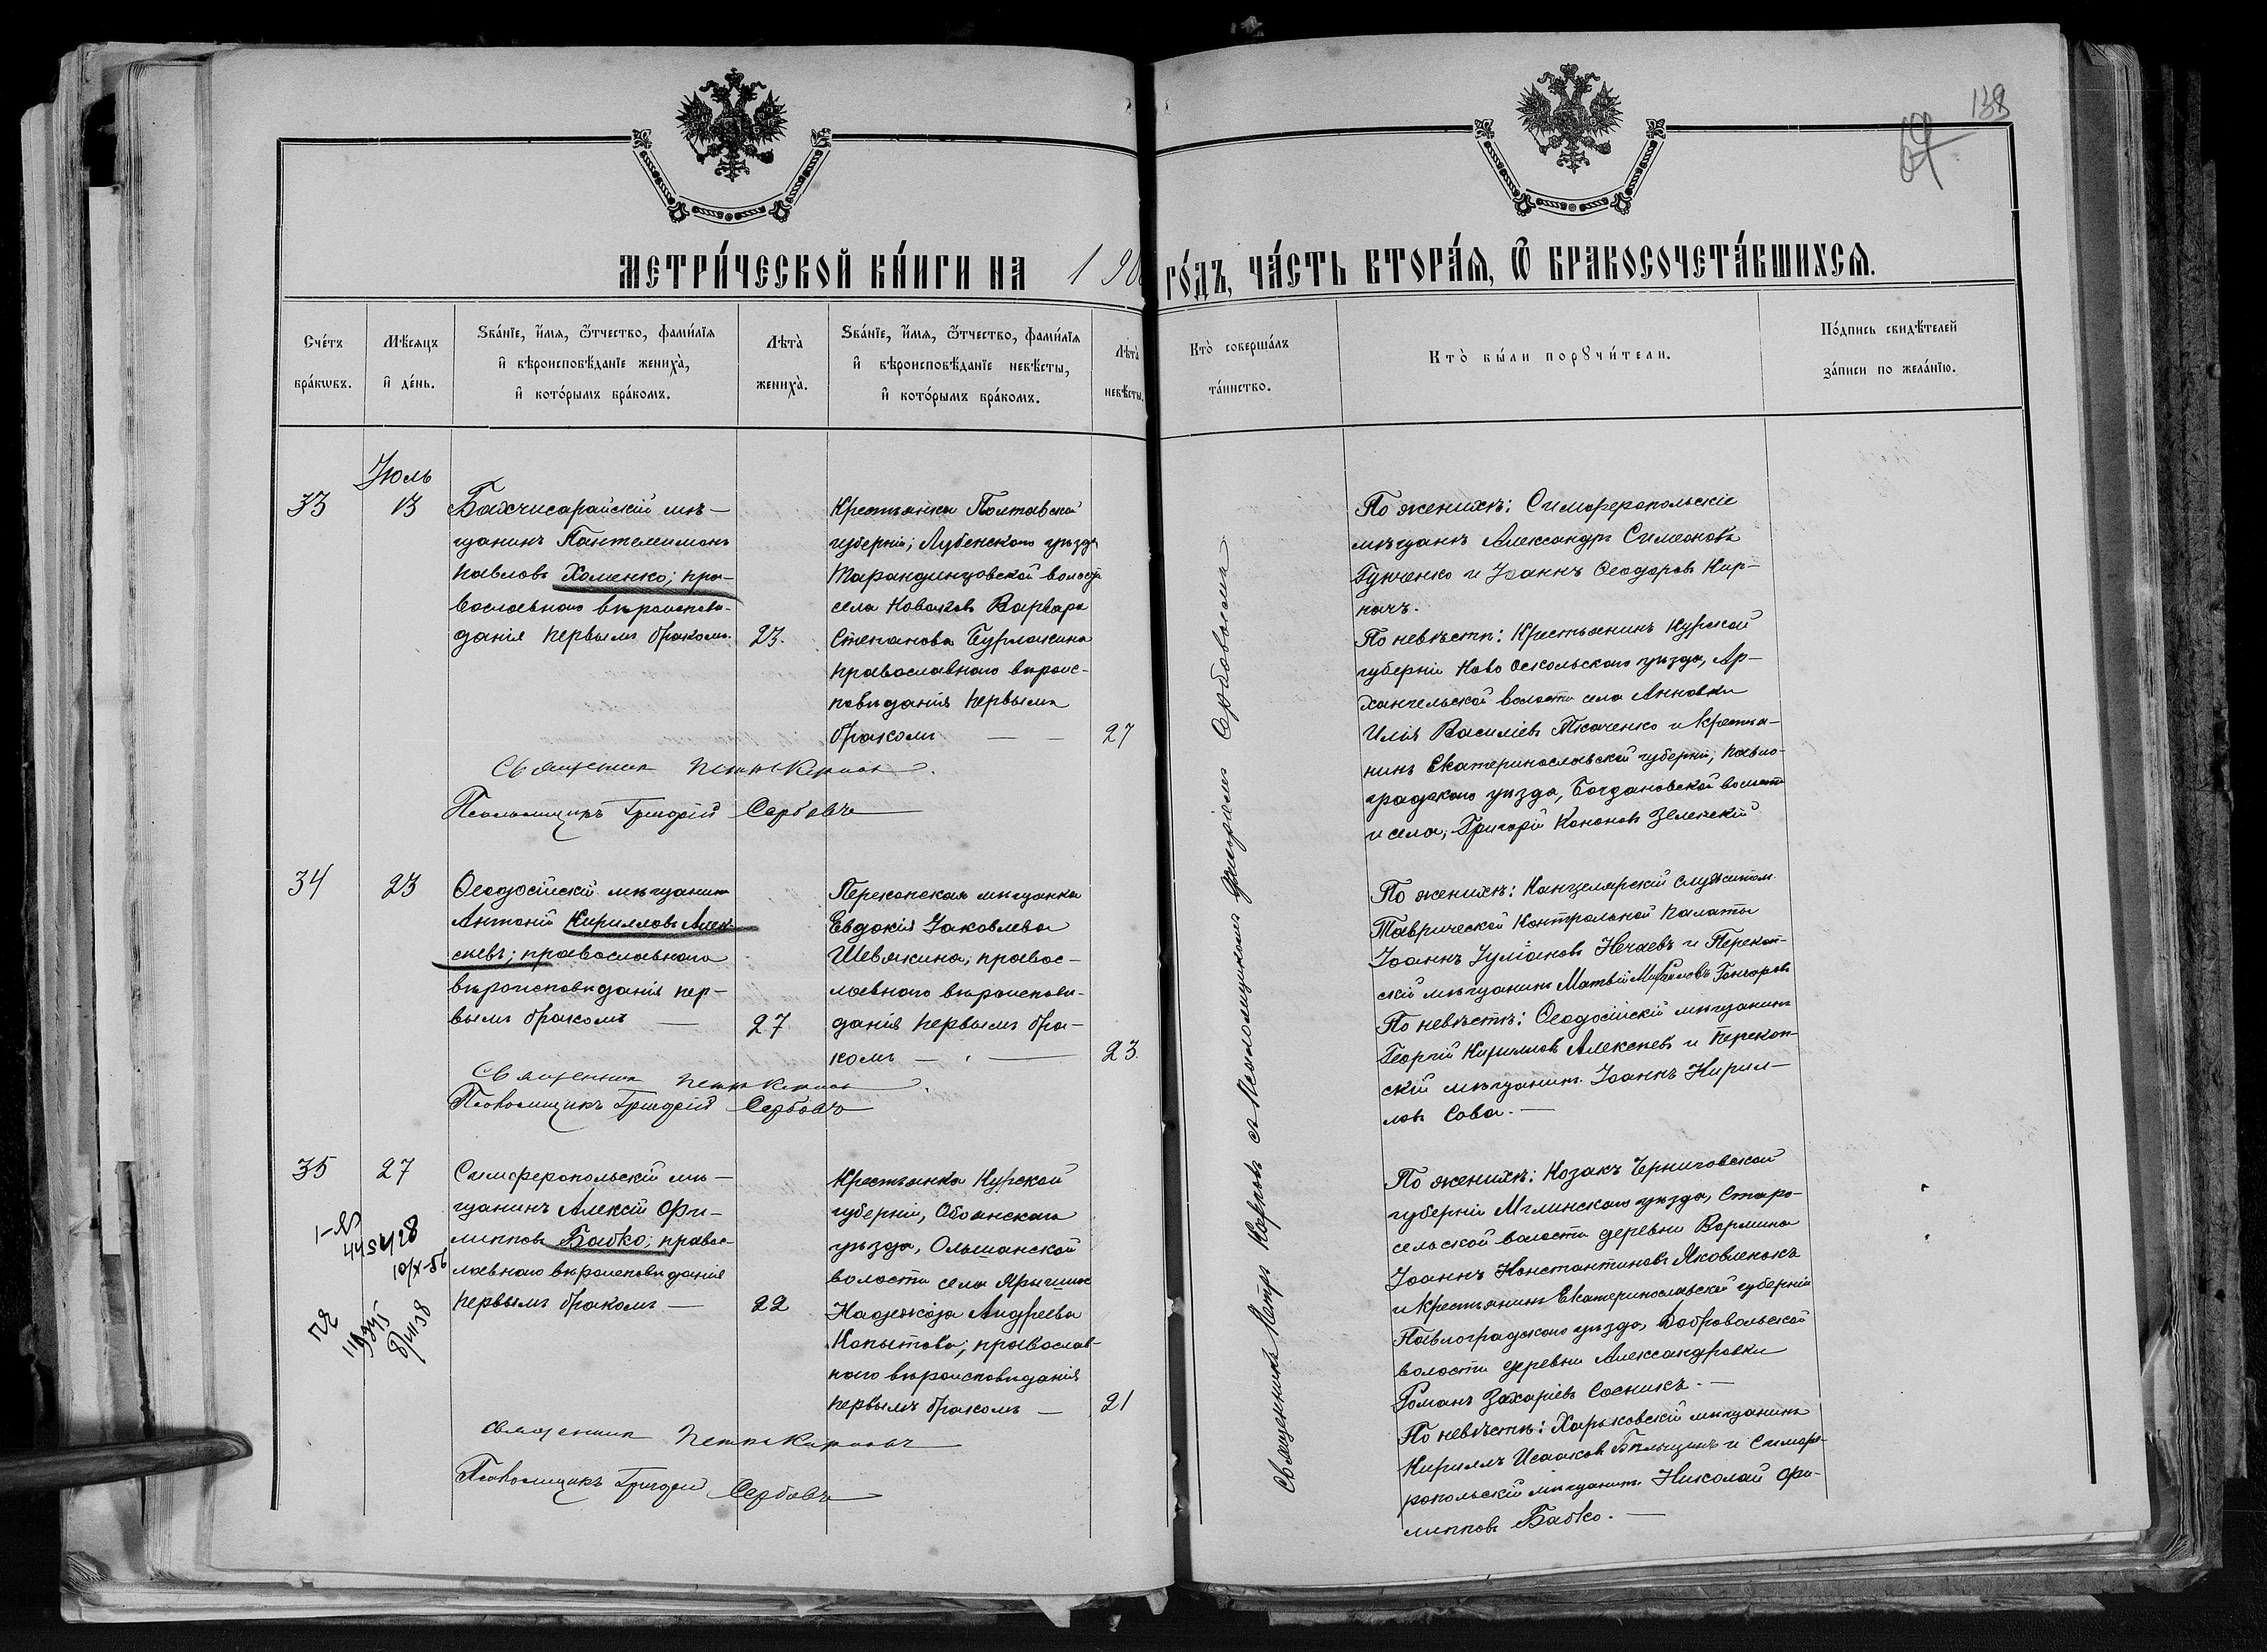 138
69
МЕТРИ́ЧЕСКОЙ КНИ́ГИ НА 190
ГО́ДЪ, ЧА́СТЬ ВТОРА́Я, Ѽ БРАКОСОЧЕТА́ВШИХСЯ.
Сче́тъ бра́кѡвъ.
Мѣ́сяцъ и҆ де́нь.
Ѕва́нїе, и҆́мя, ѻ҆́тчество, фами́лїя
и҆ вѣроисповѣ́данїе жениха̀,
и҆ кото́рымъ бра́комъ.
Лѣ́та жениха̀.
Ѕва́нїе, и҆́мя, ѻ҆́тчество, фами́лїя
и҆ вѣроисповѣ́данїе невѣ́сты,
и҆ кото́рымъ бра́комъ.
Лѣ́та невѣ́сты.
Кто̀ соверша́лъ
та́инство.
Кто̀ бы́ли порꙋчи́тели.
По́дпись свидѣ́телей
за́писи по жела́нїю.
Іюль
33
13
Бахчисарайскій мѣ-
щанинъ Пантелеимонъ
Павловъ Хоменко; пра-
вославнаго вѣроиспове-
данія первымъ бракомъ.
23.
Крестьянка Полтавской
губерніи, Лубенскаго уѣзда
Тарандинцовской волости
села Ковалевъ Варвара
Степанова Бурлакина
православнаго вѣроис-
повѣданія первымъ
бракомъ — —
27
Священникъ Петръ Карповъ.
Псаломщикъ Григорій Сербовъ
По женихѣ: Симферопольскіе
мѣщане Александръ Симеоновъ
Гунченко и Іоаннъ Ѳеодоровъ Кир-
пачъ.
По невѣстѣ: Крестьянинъ Курской
губерніи Ново Оскольскаго уѣзда, Ар-
хангельской волости села Анновки
Илія Василіевъ Ткаченко и крестья-
нинъ Екатеринославской губерніи, Павло-
градскаго уѣзда, Богдановской волости
и села, Григорій Кононовъ Зеленскій
34
23
Ѳеодосійскій мѣщанинъ
Антоній Кирилловъ Алек-
сѣевъ; православнаго
вѣроисповѣданія пер-
вымъ бракомъ —
27
Перекопская мѣщанка
Евдокія Іаковлева
Шевякина, правос-
лавнаго вѣроисповѣ-
данія первымъ бра-
комъ — —
23.
Священникъ Петръ Карповъ.
Псаломщикъ Григорій Сербовъ
По женихѣ: Канцелярскій служитель
Таврической Контрольной Палаты
Іоаннъ Іуліановъ Нечаевъ и Перекоп-
скій мѣщанинъ Матвій Михаиловъ Гончаровъ
По невѣстѣ: Ѳеодосійскій мѣщанинъ
Георгій Кирилловъ Алексѣевъ и Перекоп-
скій мѣщанинъ Іоаннъ Кирил-
ловъ Сова.—
35
27
Симферопольскій мѣ-
щанинъ Алексій Фи-
липповъ Бабко; правос-
лавнаго вѣроисповѣданія
первымъ бракомъ —
22
Крестьянка Курской
губерніи, Обоянскаго
уѣзда, Ольшанской
волости села
Надежда Андреева
Копытова, православ-
наго вѣроисповѣданія
первымъ бракомъ —
21
Священникъ Петръ Карповъ
Псаломщикъ Григорій Сербовъ
По женихѣ: Козакъ Черниговской
губерніи Мглинскаго уѣзда, Старо-
сельской волости деревни Вормина
Іоаннъ Константиновъ Яковленокъ
и крестьянинъ Екатеринославской губерніи
Павлоградскаго уѣзда, Добровольской
волости деревни Александровки
Романъ Захаріевъ Сосникъ.—
По невѣстѣ: Харьковскій мѣщанинъ
Кириллъ Исааковъ и Симфе-
ропольскій мѣщанинъ Николай Фи-
липповъ Бабко.—
Священникъ Петръ Карповъ съ Псаломщикомъ Григоріемъ Сербовымъ